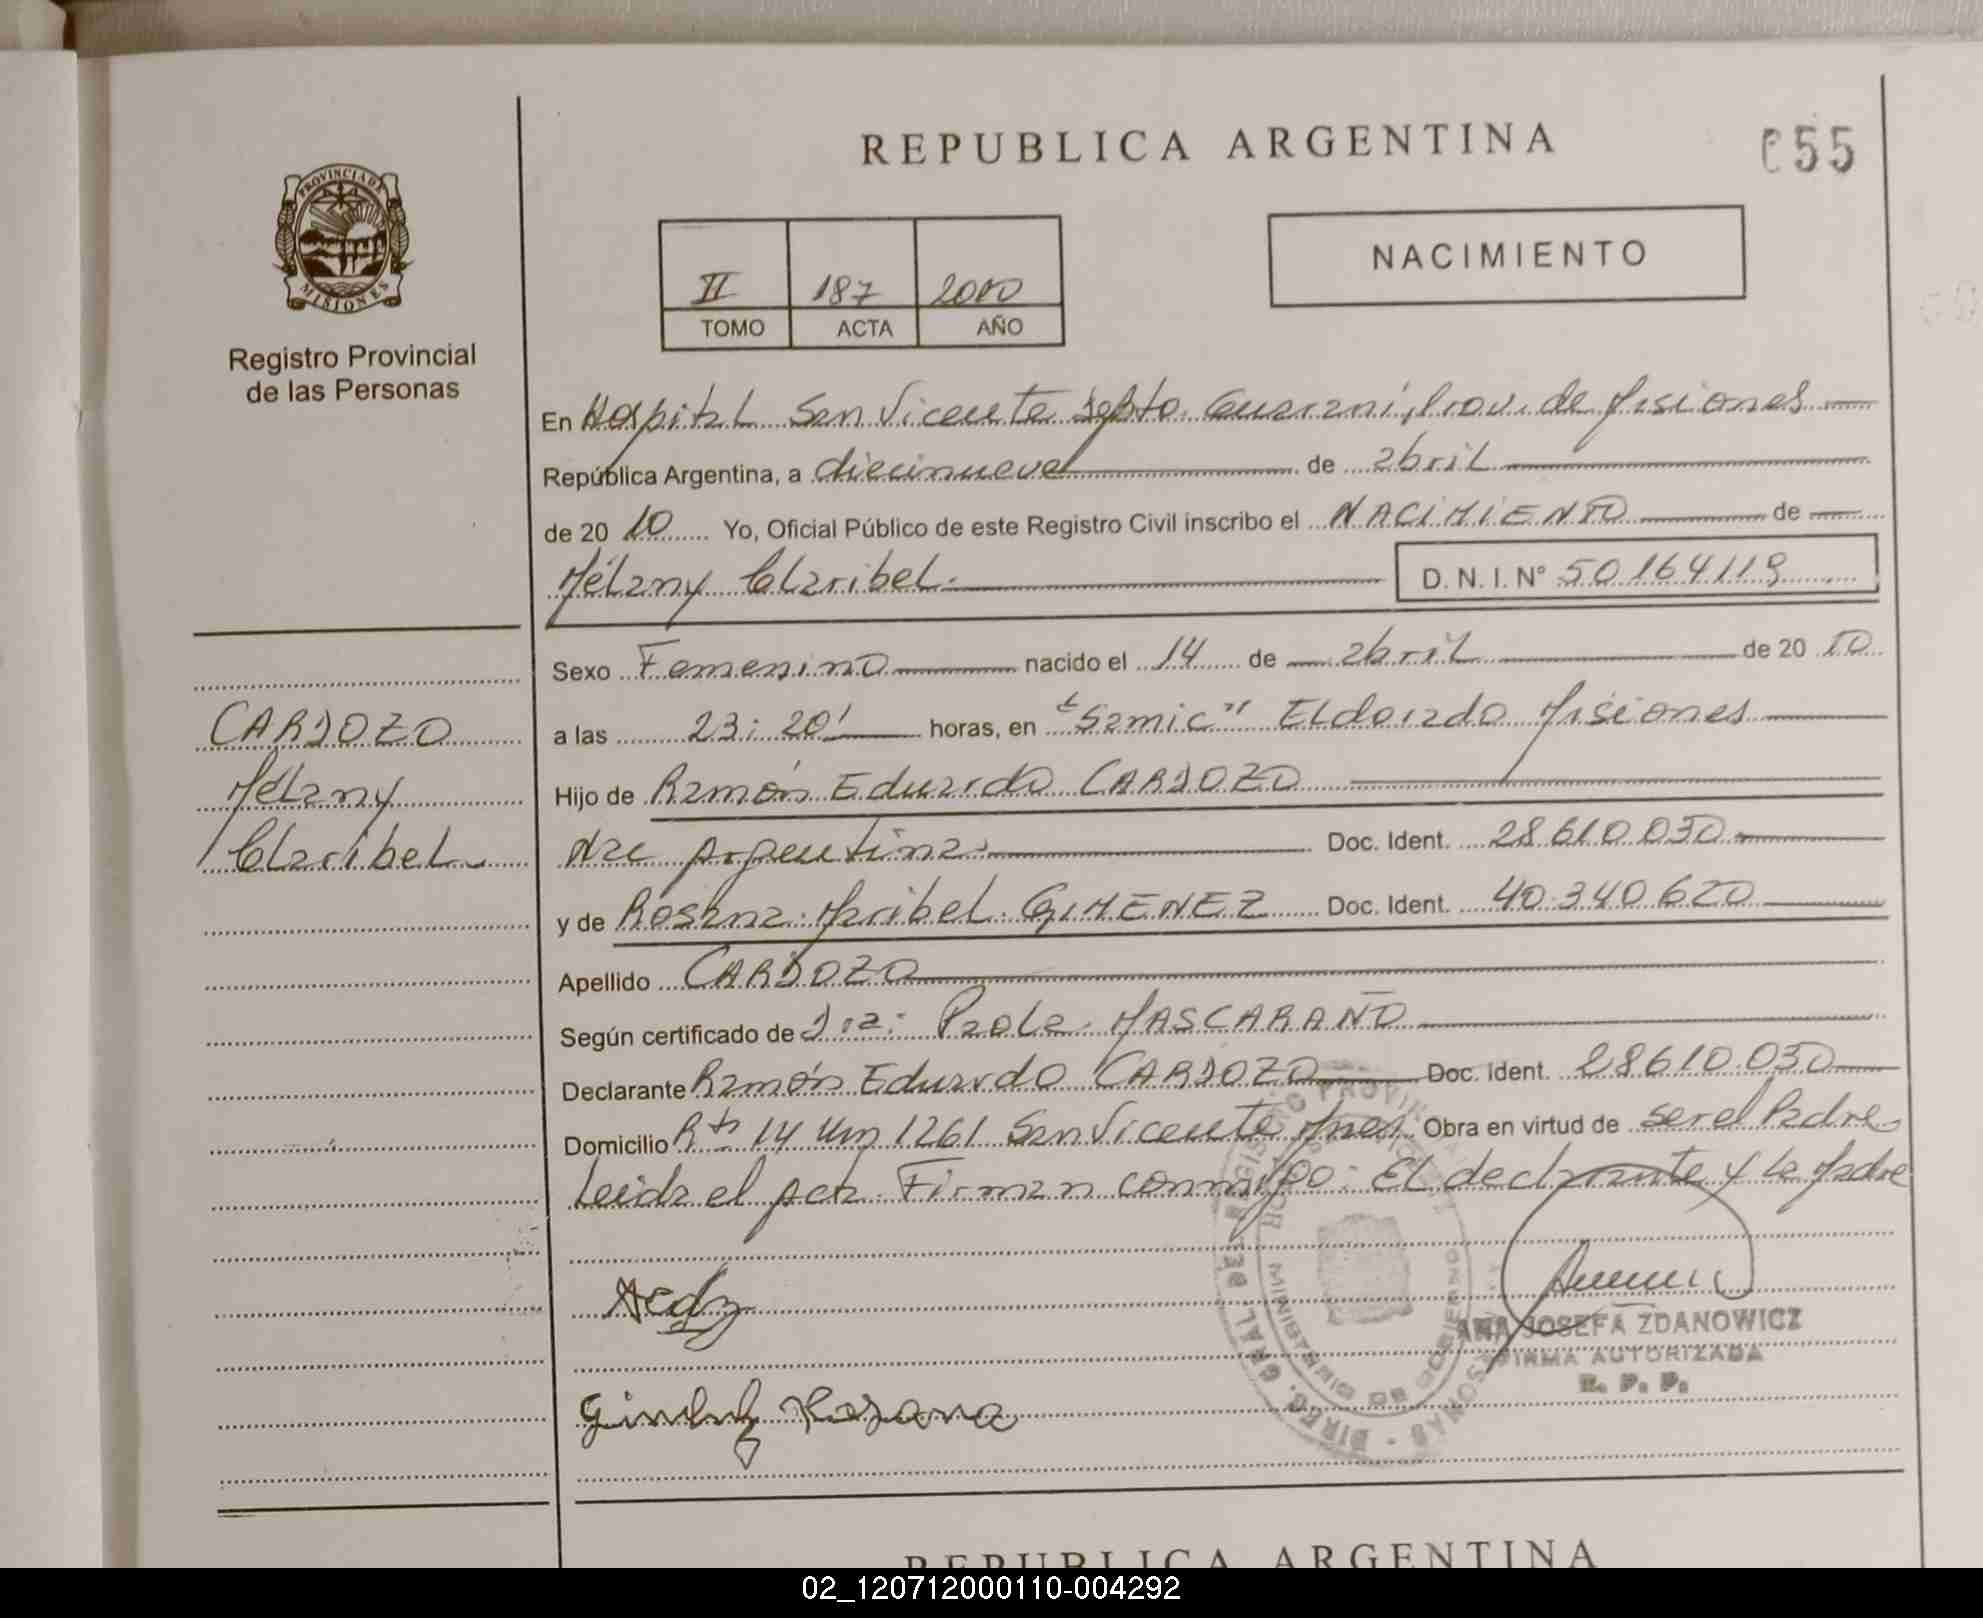 REPUBLICA ARGENTINA
055
PROVINCIA DE
MISIONES
Registro Provincial
de las Personas
NACIMIENTO
II 187 2010
TOMO ACTA AÑO
En Hospital San Vicente Dpto. Guarani, Prov. de Misiones
República Argentina, a diecinueve de abril
de 20 10 Yo, Oficial Público de este Registro Civil inscribo el NACIMIENTO de
Mélany Claribel. D. N. I. N° 50164119
Sexo Femenino nacido el 14 de abril de 20 10
a las 23:20' horas, en "Samic" Eldorado Misiones
Hijo de Ramón Eduardo CARDOZO
Nac Argentina. Doc. Ident. 28.610.030
y de Rosana Maribel GIMENEZ Doc. Ident. 40.340.620
Apellido CARDOZO
Según certificado de Dra: Paola MASCARAÑO
Declarante Ramón Eduardo CARDOZO Doc. Ident. 28.610.030
Domicilio Rta 14 Km 1261 San Vicente Mnes Obra en virtud de ser el Padre
Leida el acta Firman conmigo: El declarante y la Madre
CARDOZO
Mélany
Claribel
ANA JOSEFA ZDANOWICZ
FIRMA AUTORIZADA
R. P. P.
Gimenez Rosana
REPUBLICA ARGENTINA
02_120712000110-004292